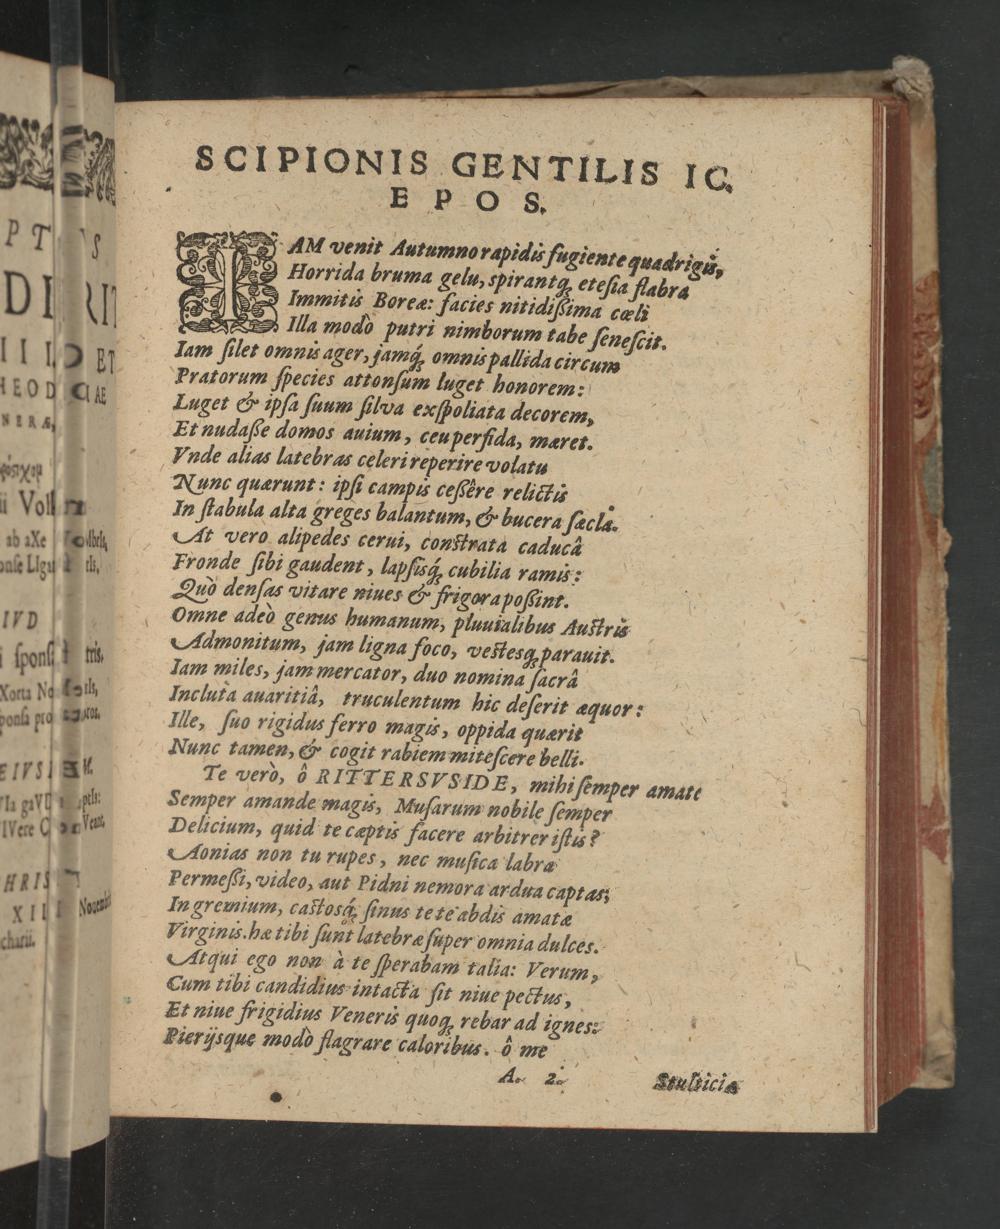 SCIPIONIS GENTILIS IC.
EPOS.
IAM venit Autumno rapidis fugiente quadrigis,
Horrida bruma gelu, spirantq; etesia flabra
Immitis Boreæ: facies nitidißima cœli
Illa modò putri nimborum tabe senescit.
Iam silet omnis ager, jamq́; omnis pallida circum
Pratorum species attonsum luget honorem:
Luget & ipsa suum silva exspoliata decorem,
Et nudaße domos auium, ceu perfida, mæret.
Vnde alias latebras celeri reperire volatu
Nunc quærunt: ipsi campis ceßêre relictis
In stabula alta greges balantum, & bucera sæcla.
At vero alipedes cerui, constrata caducâ
Fronde sibi gaudent, lapsisq́; cubilia ramis:
Quò densas vitare niues & frigora poßint.
Omne adeò genus humanum, pluuialibus Austris
Admonitum, jam ligna foco, vestesq; parauit.
Iam miles, jam mercator, duo nomina sacrâ
Incluta auaritiâ, truculentum hic deserit æquor:
Ille, suo rigidus ferro magis, oppida quærit
Nunc tamen, & cogit rabiem mitescere belli.
Te verò, ô RITTERSVSIDE, mihi semper amate
Semper amande magis, Musarum nobile semper
Delicium, quid te cæptis facere arbitrer istis?
Aonias non tu rupes, nec musica labra
Permeßi, video, aut Pidni nemora ardua captas;
In gremium, castosq́; sinus te te abdis amatæ
Virginis. hæ tibi sunt latebræ super omnia dulces.
Atqui ego non à te sperabam talia: Verum,
Cum tibi candidius intacta sit niue pectus,
Et niue frigidius Veneris quoq; rebar ad ignes:
Pierijsque modò flagrare caloribus. ô me
A 2 Stulticia